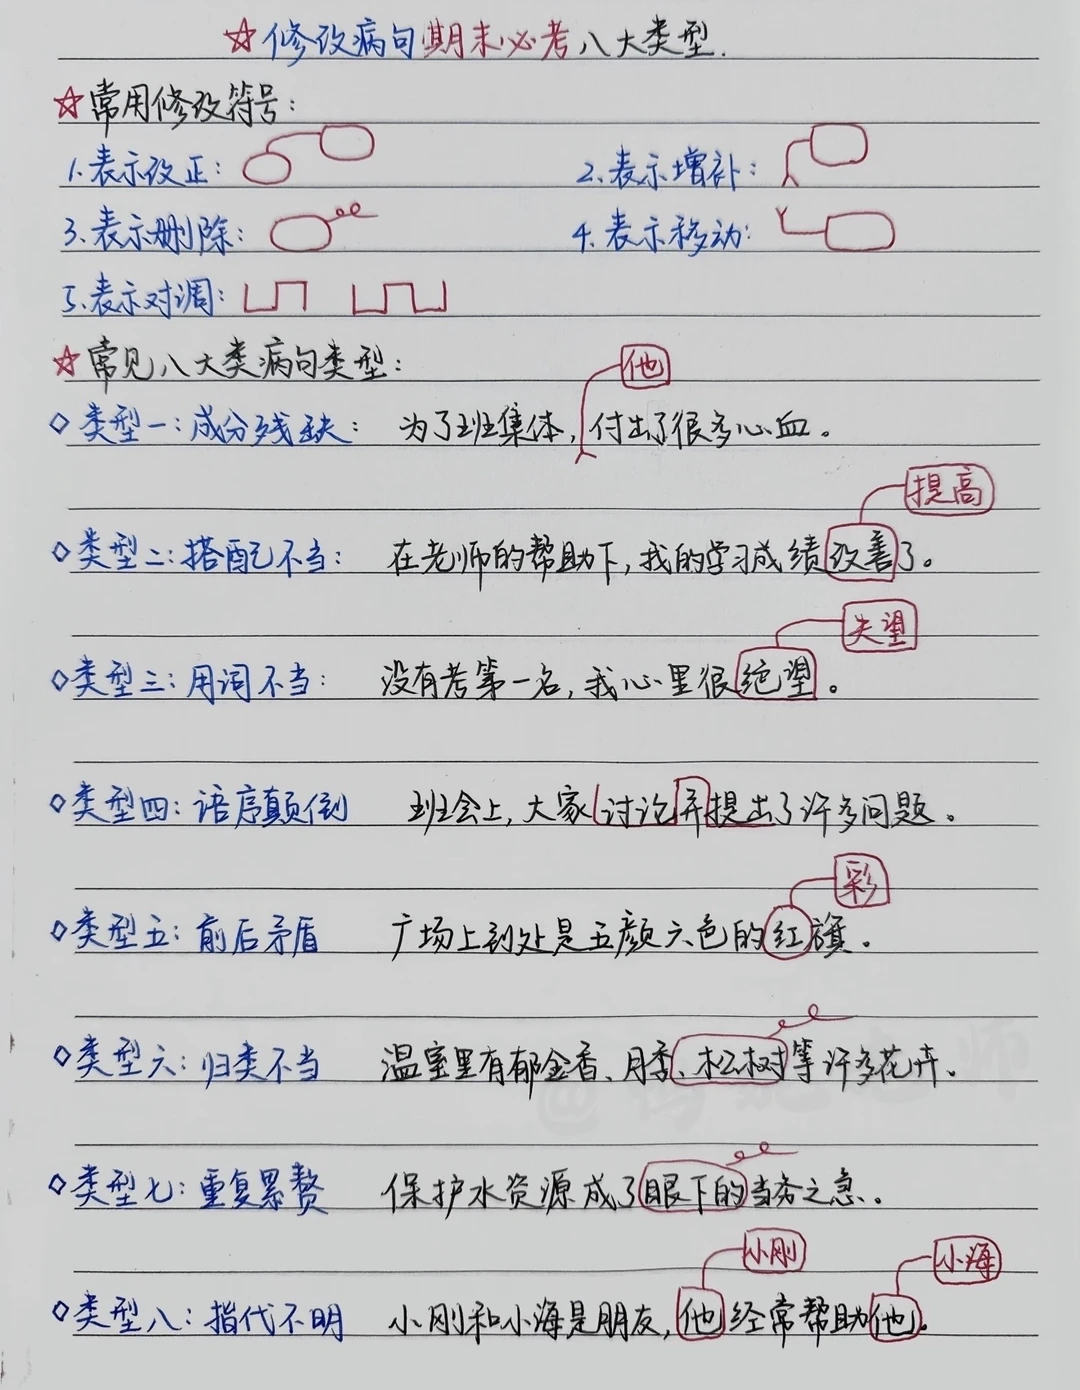 ☆修改病句期末必考八大类型.
☆常用修改符号:
1.表示改正: 2.表示增补:
3.表示删除: 4.表示移动:
5.表示对调:
☆常见八大类病句类型:
他
◇类型一:成分残缺: 为了班集体,付出了很多心血。
提高
◇类型二:搭配不当: 在老师的帮助下,我的学习成绩改善了。
失望
◇类型三:用词不当: 没有考第一名,我心里很绝望。
◇类型四:语序颠倒 班会上,大家讨论并提出了许多问题。
彩
◇类型五:前后矛盾 广场上到处是五颜六色的红旗。
◇类型六:归类不当 温室里有郁金香、月季、松树等许多花卉。
◇类型七:重复累赘 保护水资源成了眼下的当务之急。
小刚 小海
◇类型八:指代不明 小刚和小海是朋友,他经常帮助他。